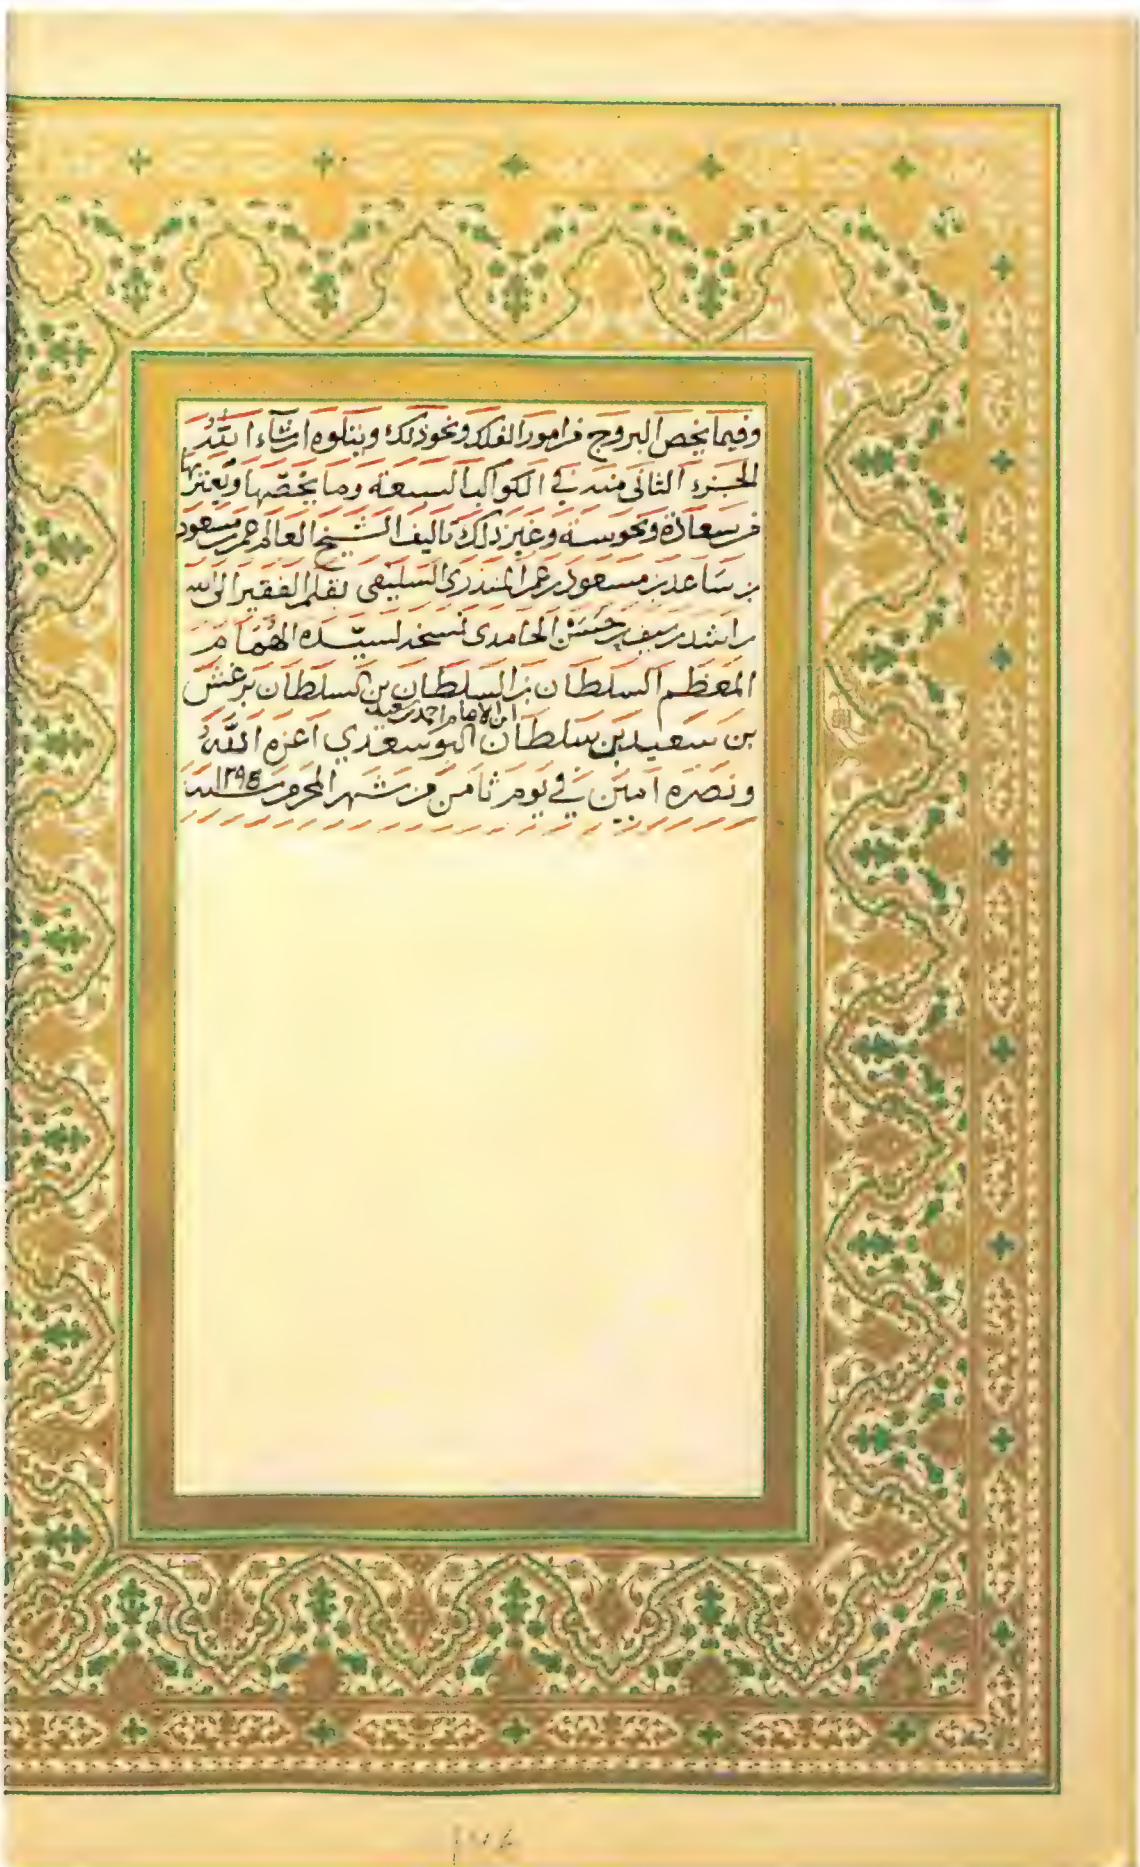 وفيما يخص البروج من امور الفلك ونحو ذلك ويتلوه ان شاء الله
الجزء الثاني منه في الكواكب السبعة وما يخصها ويعتريها
من سعادة ونحوسة وغير ذلك تاليف الشيخ العالم عمر بن مسعود
بن ساعد بن مسعود بن عمر المنذري السليفي بقلم الفقير الى الله
راشد بن سيف بن حسن الحامدي نسخه لسيده الهمام
المعظم السلطان بن السلطان بن السلطان برغش
بن سعيد بن سلطان ابن الامام احمد بن سعيد البوسعيدي اعزه الله
ونصره امين في يوم ثامن من شهر المحرم سنة